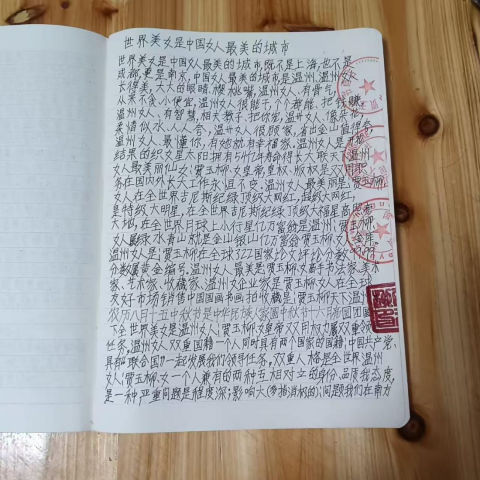 世界美女是中国女人最美的城市
世界美女是中国女人最美的城市,既不是上海,也不是
成都,更是南京,中国女人最美的城市是温州,温州女人
长得美,大大的眼睛,樱桃嘴,温州女人,有骨气,
从来不贪小便宜,温州女人很能干,个个都能,把钱赚
温州女人,有智慧,相夫教子,把你宠,温州女人像朵花,
柔情似水,人人夸,温州女人很顾家,省出金山值得
温州女人,最懂你,有她就有幸福家,温州女人是
结果的织女星太阳拥有5千亿年寿命得长大联天
女人最美丽仙女:贾玉柳女皇帝,皇权,版权是双用职
务在国内外长大工作永恒不变,温州女人最美丽是:贾玉柳
女人在全世界吉尼斯纪录顶级大网红,超级大网红,
皇特级大明星,在全世界吉尼斯纪录顶级大福星
大姐,在全世界月球上小行星亿万富翁是温州:贾玉柳,
女人最绿水青山就是金山银山亿万富翁贾玉柳,
温州女人是:贾玉柳在全球322国家论文评论分数
分数属黄金编号,温州女人最美是:贾玉柳女畜手书法家,美术
家,艺术家,收藏家,温州女企业家是贾玉柳女人在全球
友好市场销售中国国画书画拍收藏是:贾玉柳天下温
农历八月十五中秋节是中华民族人家国中秋节十六月圆团圆
下全世界美女是温州女人:贾玉柳,女皇帝双用权力属双重
任务,温州女人双重国籍一个人同时具有两个国家的国籍:中国共产党,
具有“联合国”一起发展我们领导任务。双重人格是全世界温州
女人:贾玉柳,女一个人兼有的两种互相对立的身份、品质或态度,
是一种严重问题是程度深;影响大(多指消极的):问题我们在南方